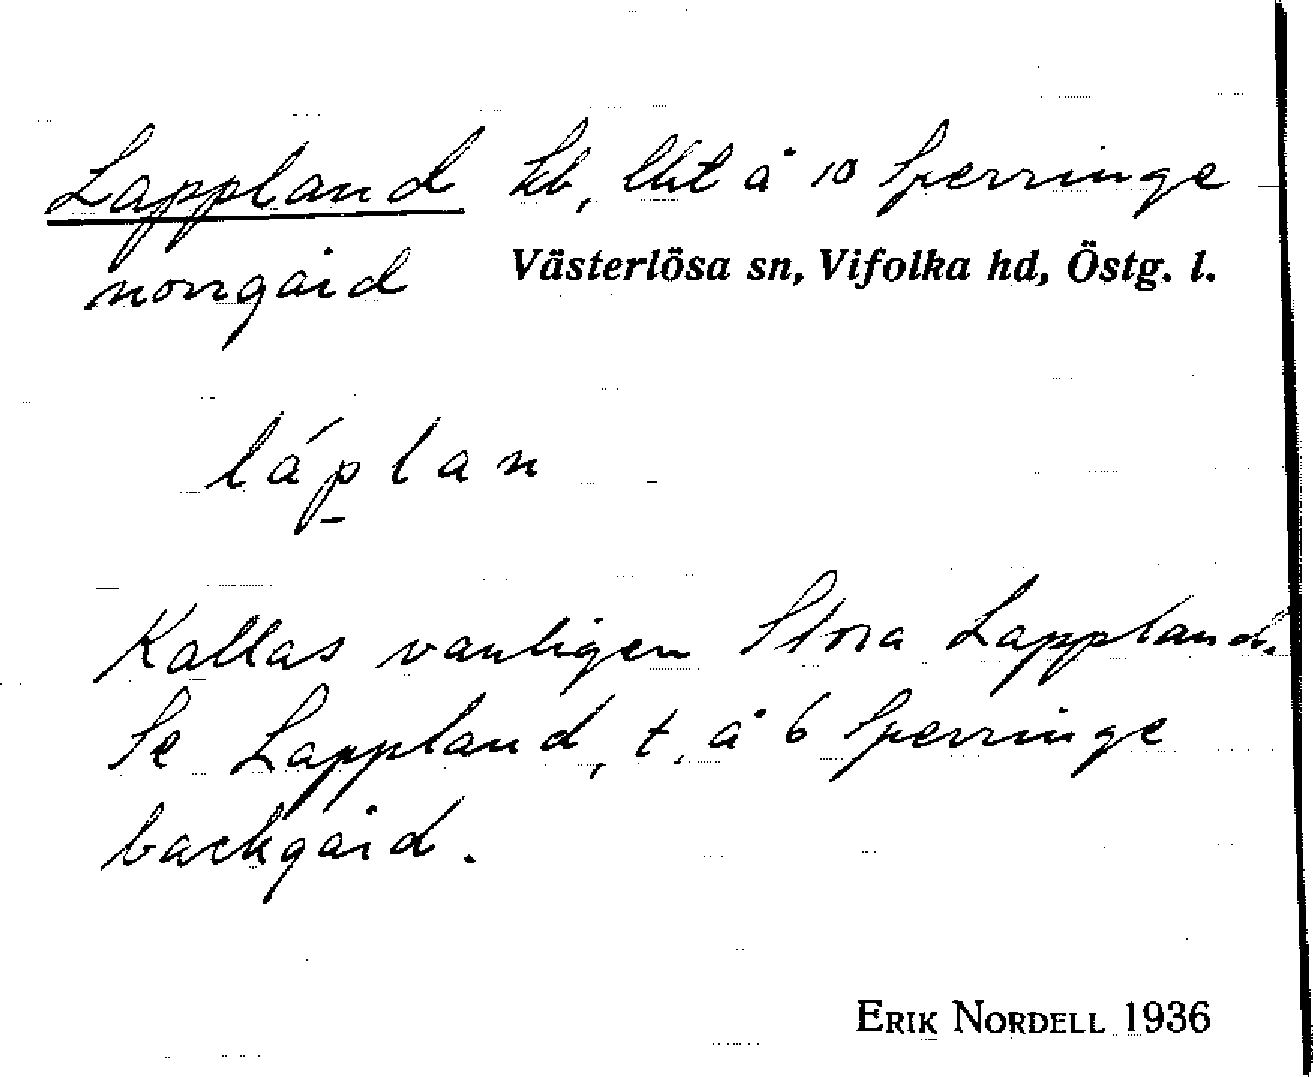 Lappland lb, lht å 10 Sperringe
norrgård Västerlösa sn, Vifolka hd, Östg. l.
láplan
Kallas vanligen Stora Lappland.
Se Lappland, t. å 6 Sperringe
backgård.
ERIK NORDELL 1936